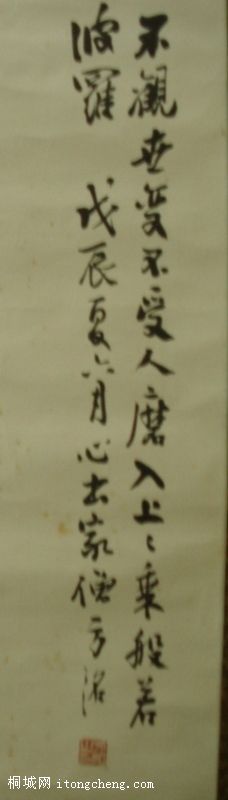 不觀世變不受人磨入上〻乘般若
波羅 戊辰夏六月心出家僧方
桐城网 itongcheng.com